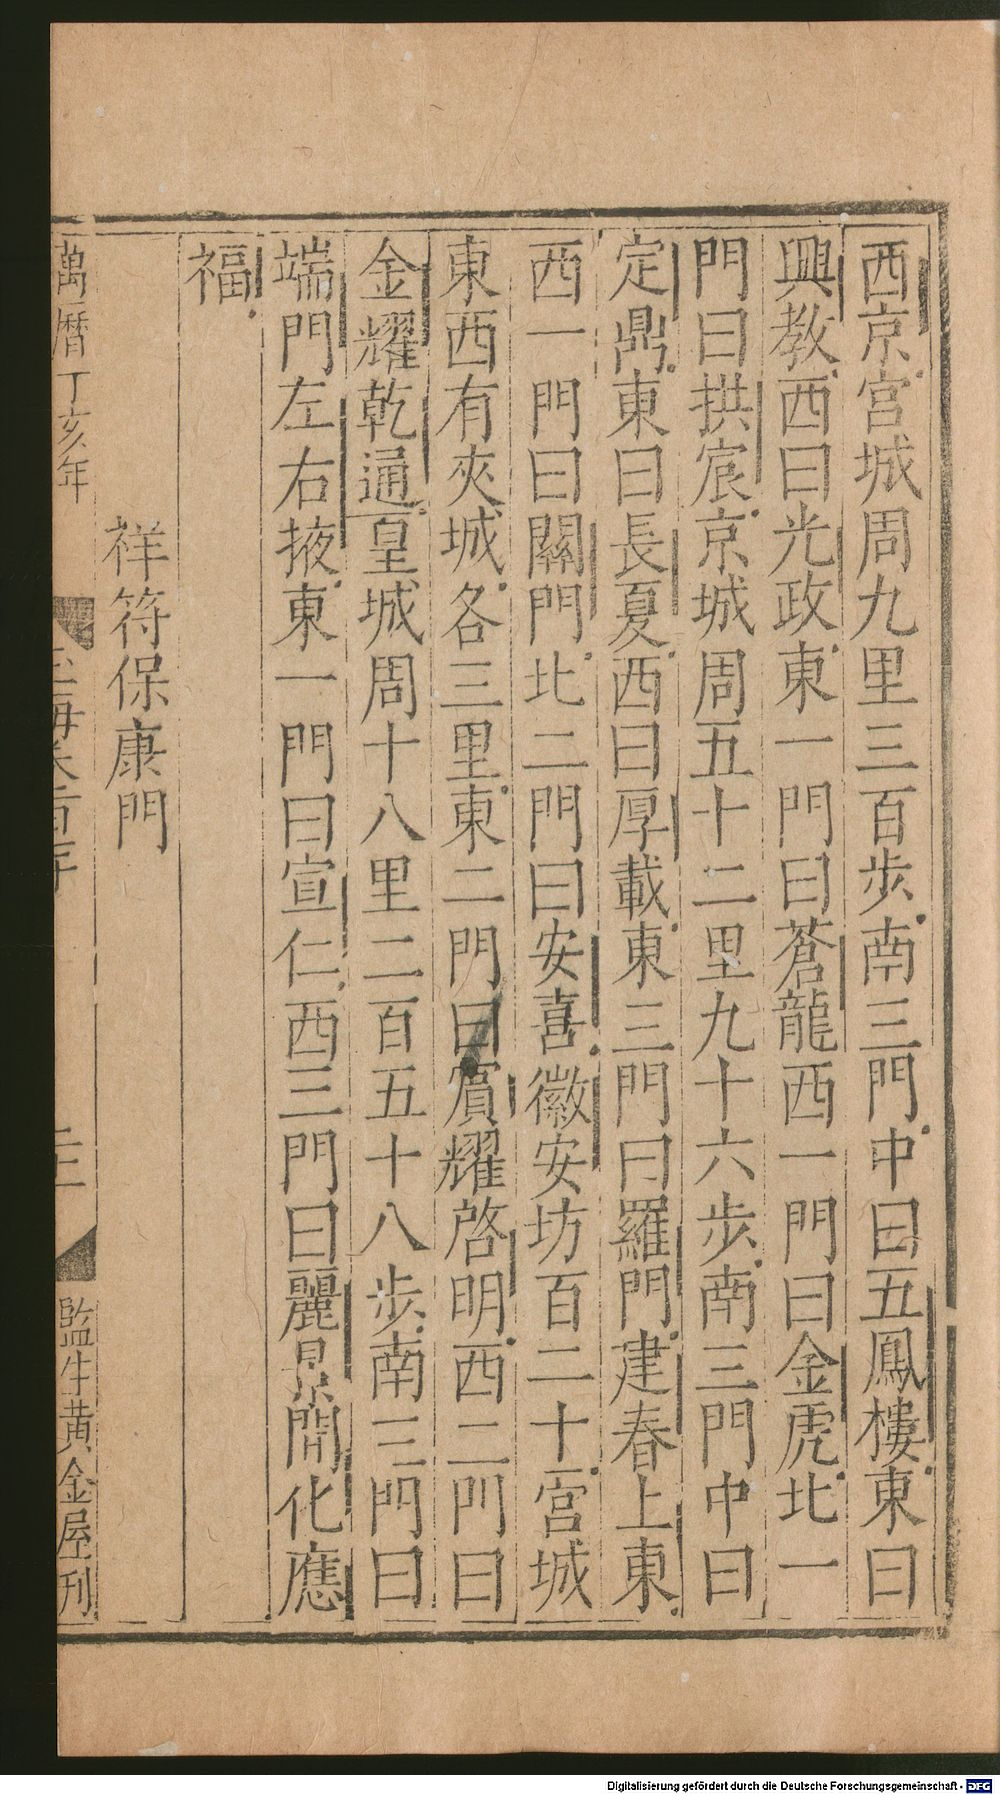 西京宮城周九里三百步南三門中曰五鳳樓東曰
興教西曰光政東一門曰蒼龍西一門曰金虎北一
門曰拱宸京城周五十二里九十六步南三門中曰
定鼎東曰長夏西曰厚載東三門曰羅門建春上東
西一門曰關門北二門曰安喜徽安坊百二十宮城
東西有夾城各三里東二門曰賔耀啓明西二門曰
金耀乾通皇城周十八里二百五十八步南三門曰
端門左右掖東一門曰宣仁西三門曰麗景開化應
福
祥符保康門
萬曆丁亥年
玉海卷百
監生黃金屋刊
Digitalisierung gefördert durch die Deutsche Forschungsgemeinschaft - DFG